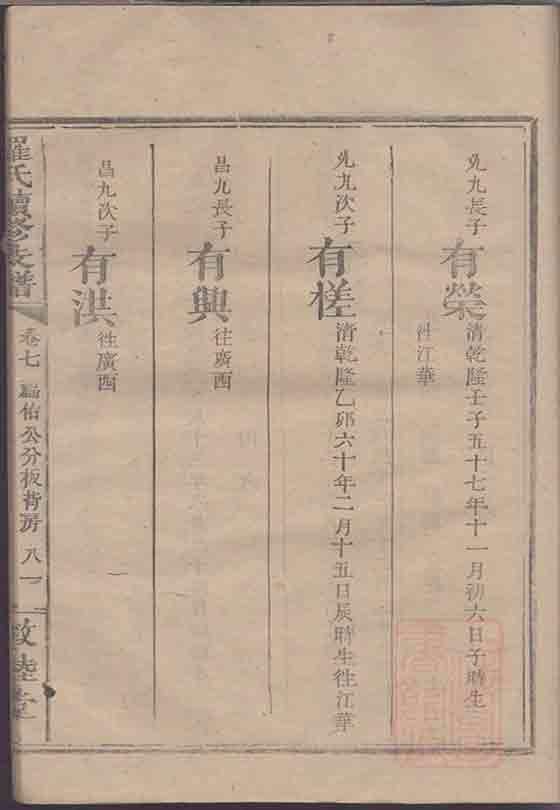 先九長子
有榮
清乾隆壬子五十七年十一月初六日子時生
往江華
先九次子
有槎
清乾隆乙卯六十年二月十五日辰時生往江華
昌九長子
有興
往廣西
昌九次子
有洪
往廣西
羅氏續修族譜
卷七
公分板背房
八一
敦睦堂